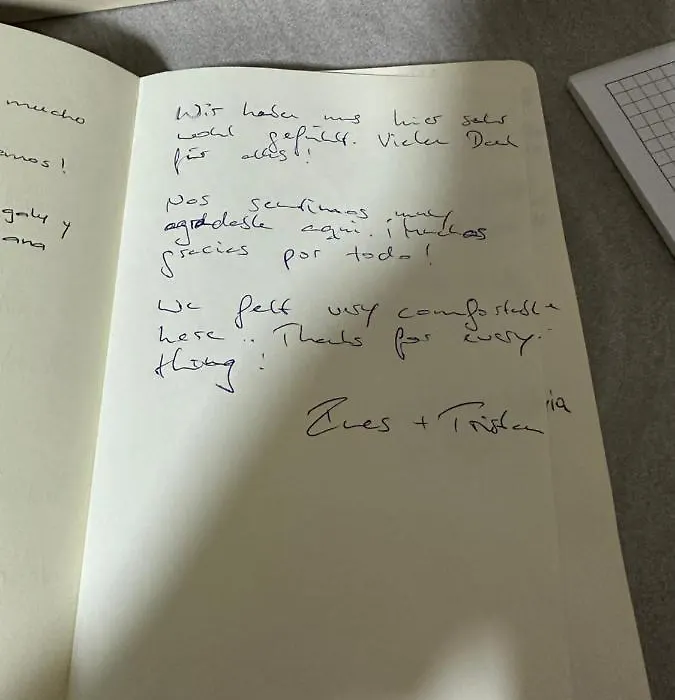 mucho
amos!
galy y
ana
Wir haben uns hier sehr
wohl gefühlt. Vielen Dank
für alles!
Nos sentimos muy
agradable aquí. ¡Muchas
gracias por todo!
We felt very comfortable
here.. Thanks for every-
thing!
+ Tristan